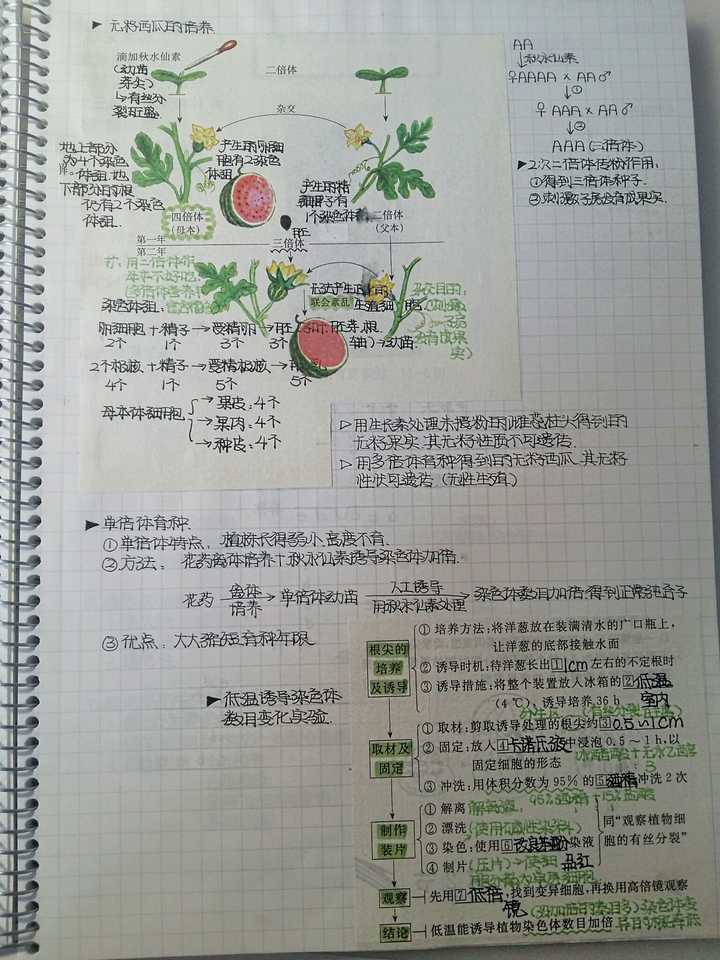 ▶ 无籽西瓜的培养.
滴加秋水仙素
(幼苗
芽尖)
↳有丝分
裂旺盛
二倍体
杂交
地上部分
为4个染色
体组.地
下部分的根
仍有2个染色
体组.
产生的卵细
胞有2染色
体组
产生的精
细胞子有
1个染色体组.
四倍体
(母本)
二倍体
(父本)
胚
第一年
三倍体
第二年
联会紊乱
杂交目的:
(刺激
子房
发育成果
实)
染色体组:
卵细胞+精子→受精卵→胚
2个 1个 3个 3个
2个极核+精子→受精极核→胚乳
4个 1个 5个 5个
母本体细胞
→果皮:4个
→果肉:4个
→种皮:4个
AA
↓秋水仙素
♀AAAA × AA♂
↓①
♀ AAA × AA♂
↓②
AAA(三倍体)
▶2次二倍体传粉作用:
①得到三倍体种子.
②刺激子房发育成果实.
▷用生长素处理未授粉的雌蕊柱头得到的
无籽果实.其无籽性质不可遗传.
▷用多倍体育种得到的无籽西瓜.其无籽
性状可遗传.(无性生殖)
▶单倍体育种.
①单倍体特点.植株长得弱小.高度不育.
②方法:花药离体培养+秋水仙素诱导染色体加倍.
花药 离体培养→ 单倍体幼苗 人工诱导 用秋水仙素处理→ 染色体数目加倍.得到正常纯合子
③优点:大大缩短育种年限
▶低温诱导染色体
数目变化实验.
根尖的
培养
及诱导
① 培养方法:将洋葱放在装满清水的广口瓶上,
让洋葱的底部接触水面
② 诱导时机:待洋葱长出1 1cm左右的不定根时
③ 诱导措施:将整个装置放入冰箱的2低温
(4 ℃),诱导培养36 h 室内
取材及
固定
① 取材:剪取诱导处理的根尖约3 0.5~1cm
② 固定:放入4卡诺氏液中浸泡0.5~1 h,以
固定细胞的形态
③ 冲洗:用体积分数为95%的5酒精冲洗2次
制作
装片
① 解离 解离液:95%酒精+15%盐酸
② 漂洗
③ 染色:使用6改良苯酚染液
品红
④ 制片(压片)
同"观察植物细
胞的有丝分裂"
观察
先用7低倍,找到变异细胞,再换用高倍镜观察
镜
结论
低温能诱导植物染色体数目加倍